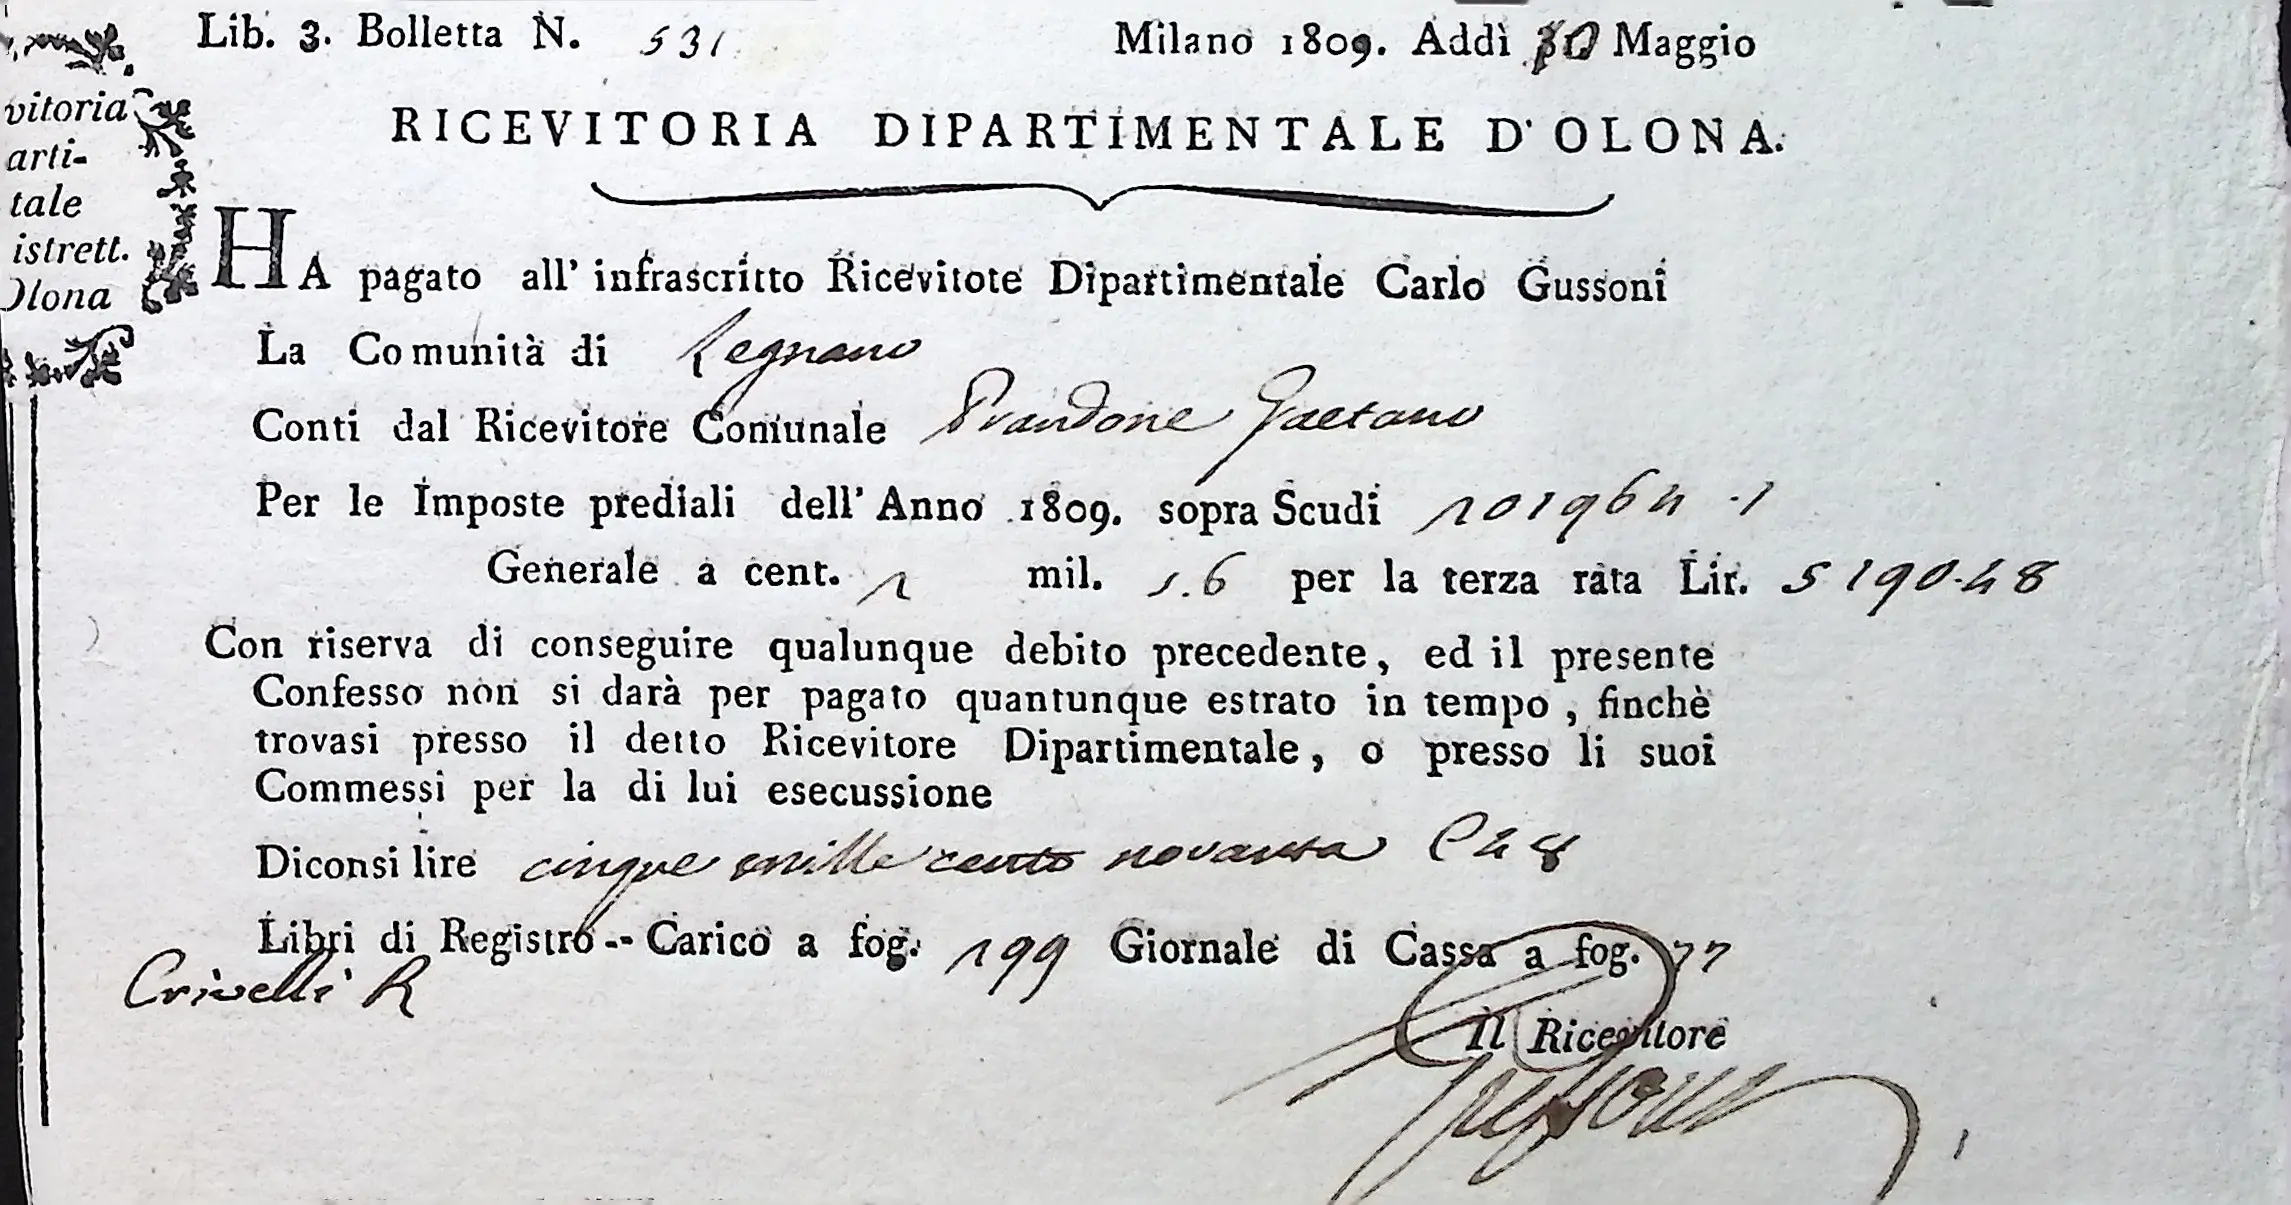 Lib. 3. Bolletta N. 531 Milano 1809. Addì 30 Maggio
vitoria
arti-
tale
istrett.
Olona
RICEVITORIA DIPARTIMENTALE D'OLONA.
HA pagato all' infrascritto Ricevitote Dipartimentale Carlo Gussoni
La Comunità di Legnano
Conti dal Ricevitore Comunale Prandone Gaetano
Per le Imposte prediali dell' Anno 1809. sopra Scudi 101964 .1
Generale a cent. 1 mil. 1.6 per la terza rata Lir. 5190.48
Con riserva di conseguire qualunque debito precedente, ed il presente
Confesso non si darà per pagato quantunque estrato in tempo, finchè
trovasi presso il detto Ricevitore Dipartimentale, o presso li suoi
Commessi per la di lui esecussione
Diconsi lire cinque mille cento novanta C 48
Libri di Registro -- Carico a fog. 199 Giornale di Cassa a fog. 77
Crivelli R
Il Ricevitore
Gussoni